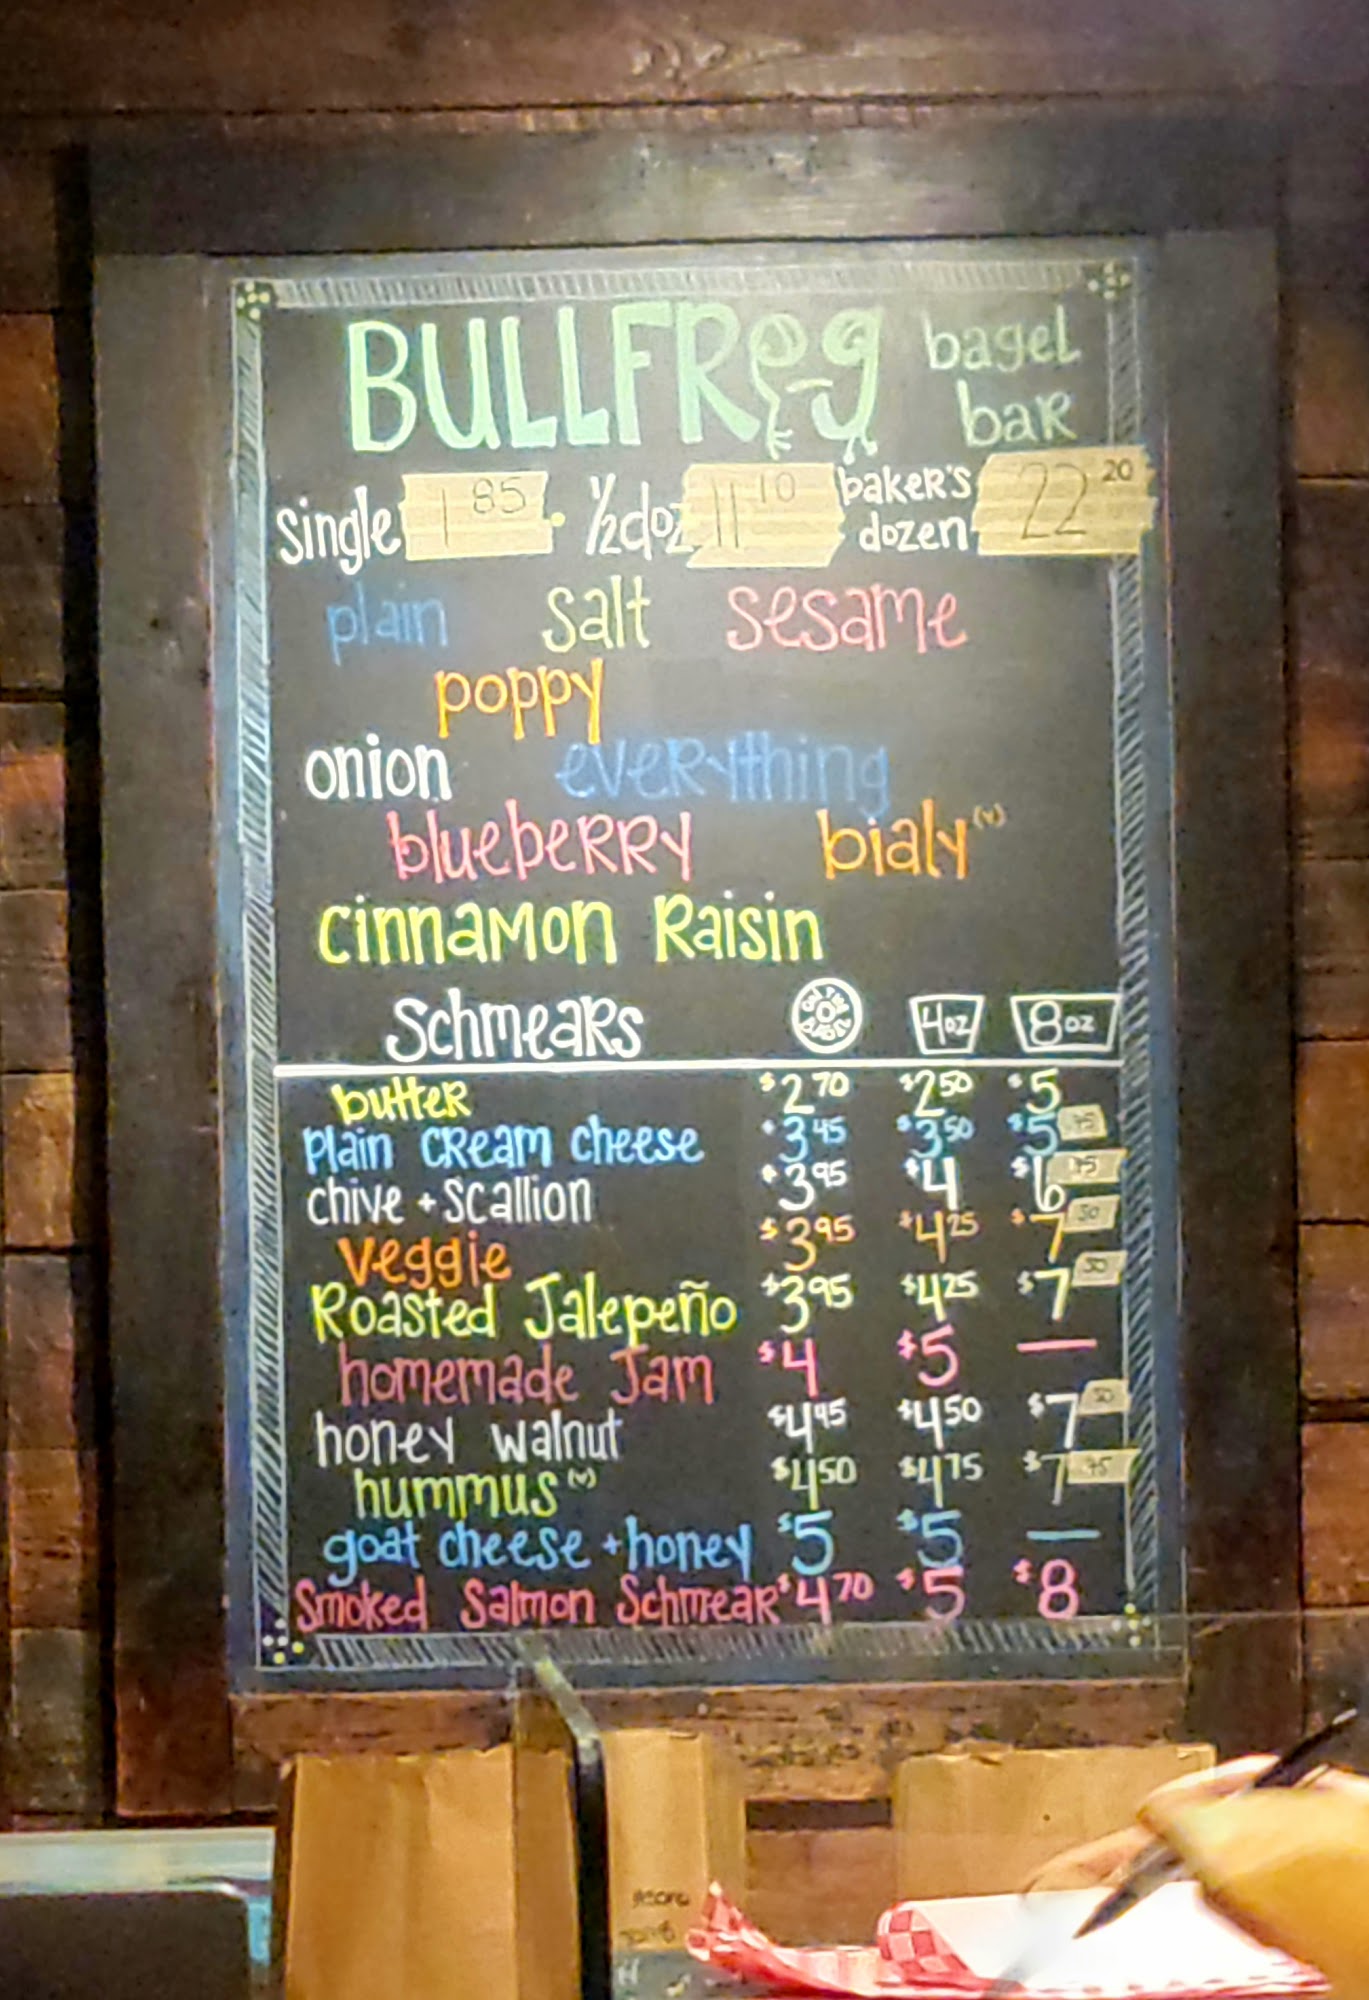 BULLFROg bagel
bar
single 1 85 · 1/2 doz 11 10 baker's
dozen 22 20
plain salt sesame
poppy
onion everything
blueberry bialy (v)
cinnamon Raisin
Schmears ON THE BAGEL 4oz 8oz
butter $2 70 $2 50 $5
plain cream cheese $3 45 $3 50 $5 .75
chive + scallion $3 95 $4 $6 .75
veggie $3 95 $4 25 $7 50
Roasted Jalepeño $3 95 $4 25 $7 50
homemade Jam $4 $5 —
honey walnut $4 45 $4 50 $7 50
hummus (v) $4 50 $4 75 $7 .75
goat cheese + honey $5 $5 —
Smoked Salmon Schmear $4 70 $5 $8